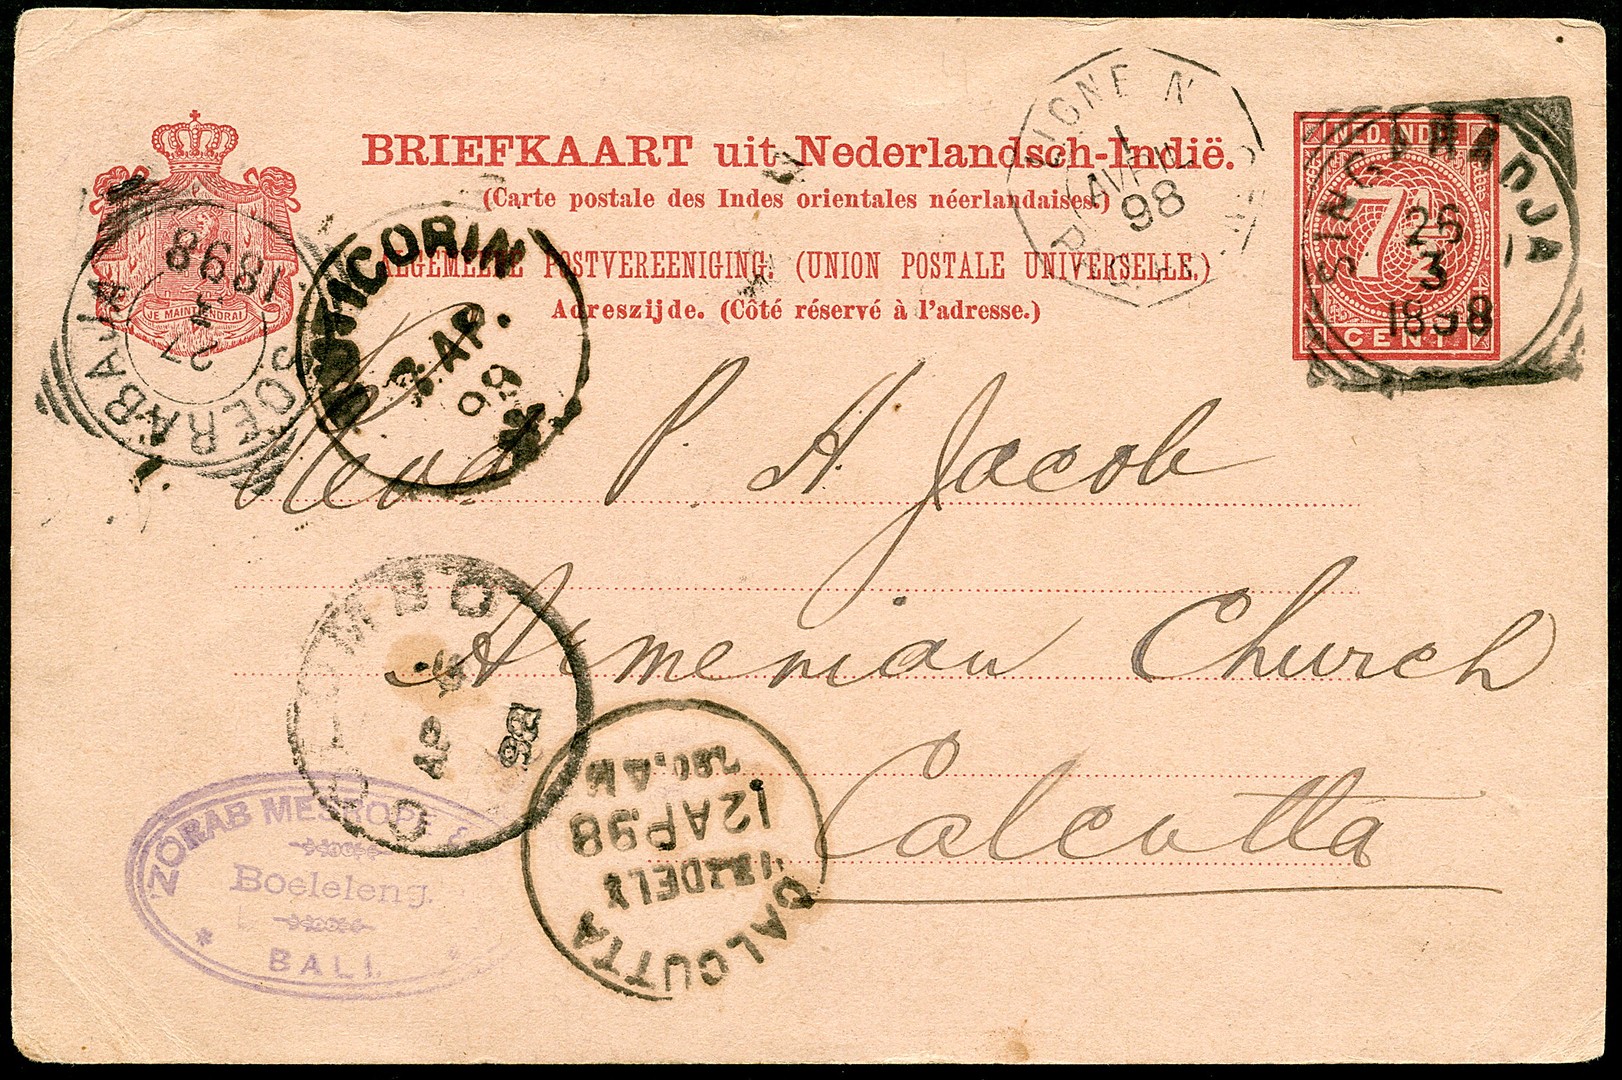 BRIEFKAART uit Nederlandsch-Indië.
(Carte postale des Indes orientales néerlandaises.)
ALGEMEENE POSTVEREENIGING. (UNION POSTALE UNIVERSELLE.)
Adreszijde. (Côté réservé à l'adresse.)
JE MAINTIENDRAI
NED. INDIE
7 1/2
CENT
SINGARADJA
26
3
1898
LIGNE N
1
AVRIL
98
SOERABAIJA
27
3
1898
TUTICORIN
AP.
98
Revd P. H. Jacob
Armenian Church
Calcutta
COLOMBO
AP
98
CALCUTTA
DELY
12 AP.98
7.30.A
ZORAB MESROPE &
Boeleleng.
BALI.